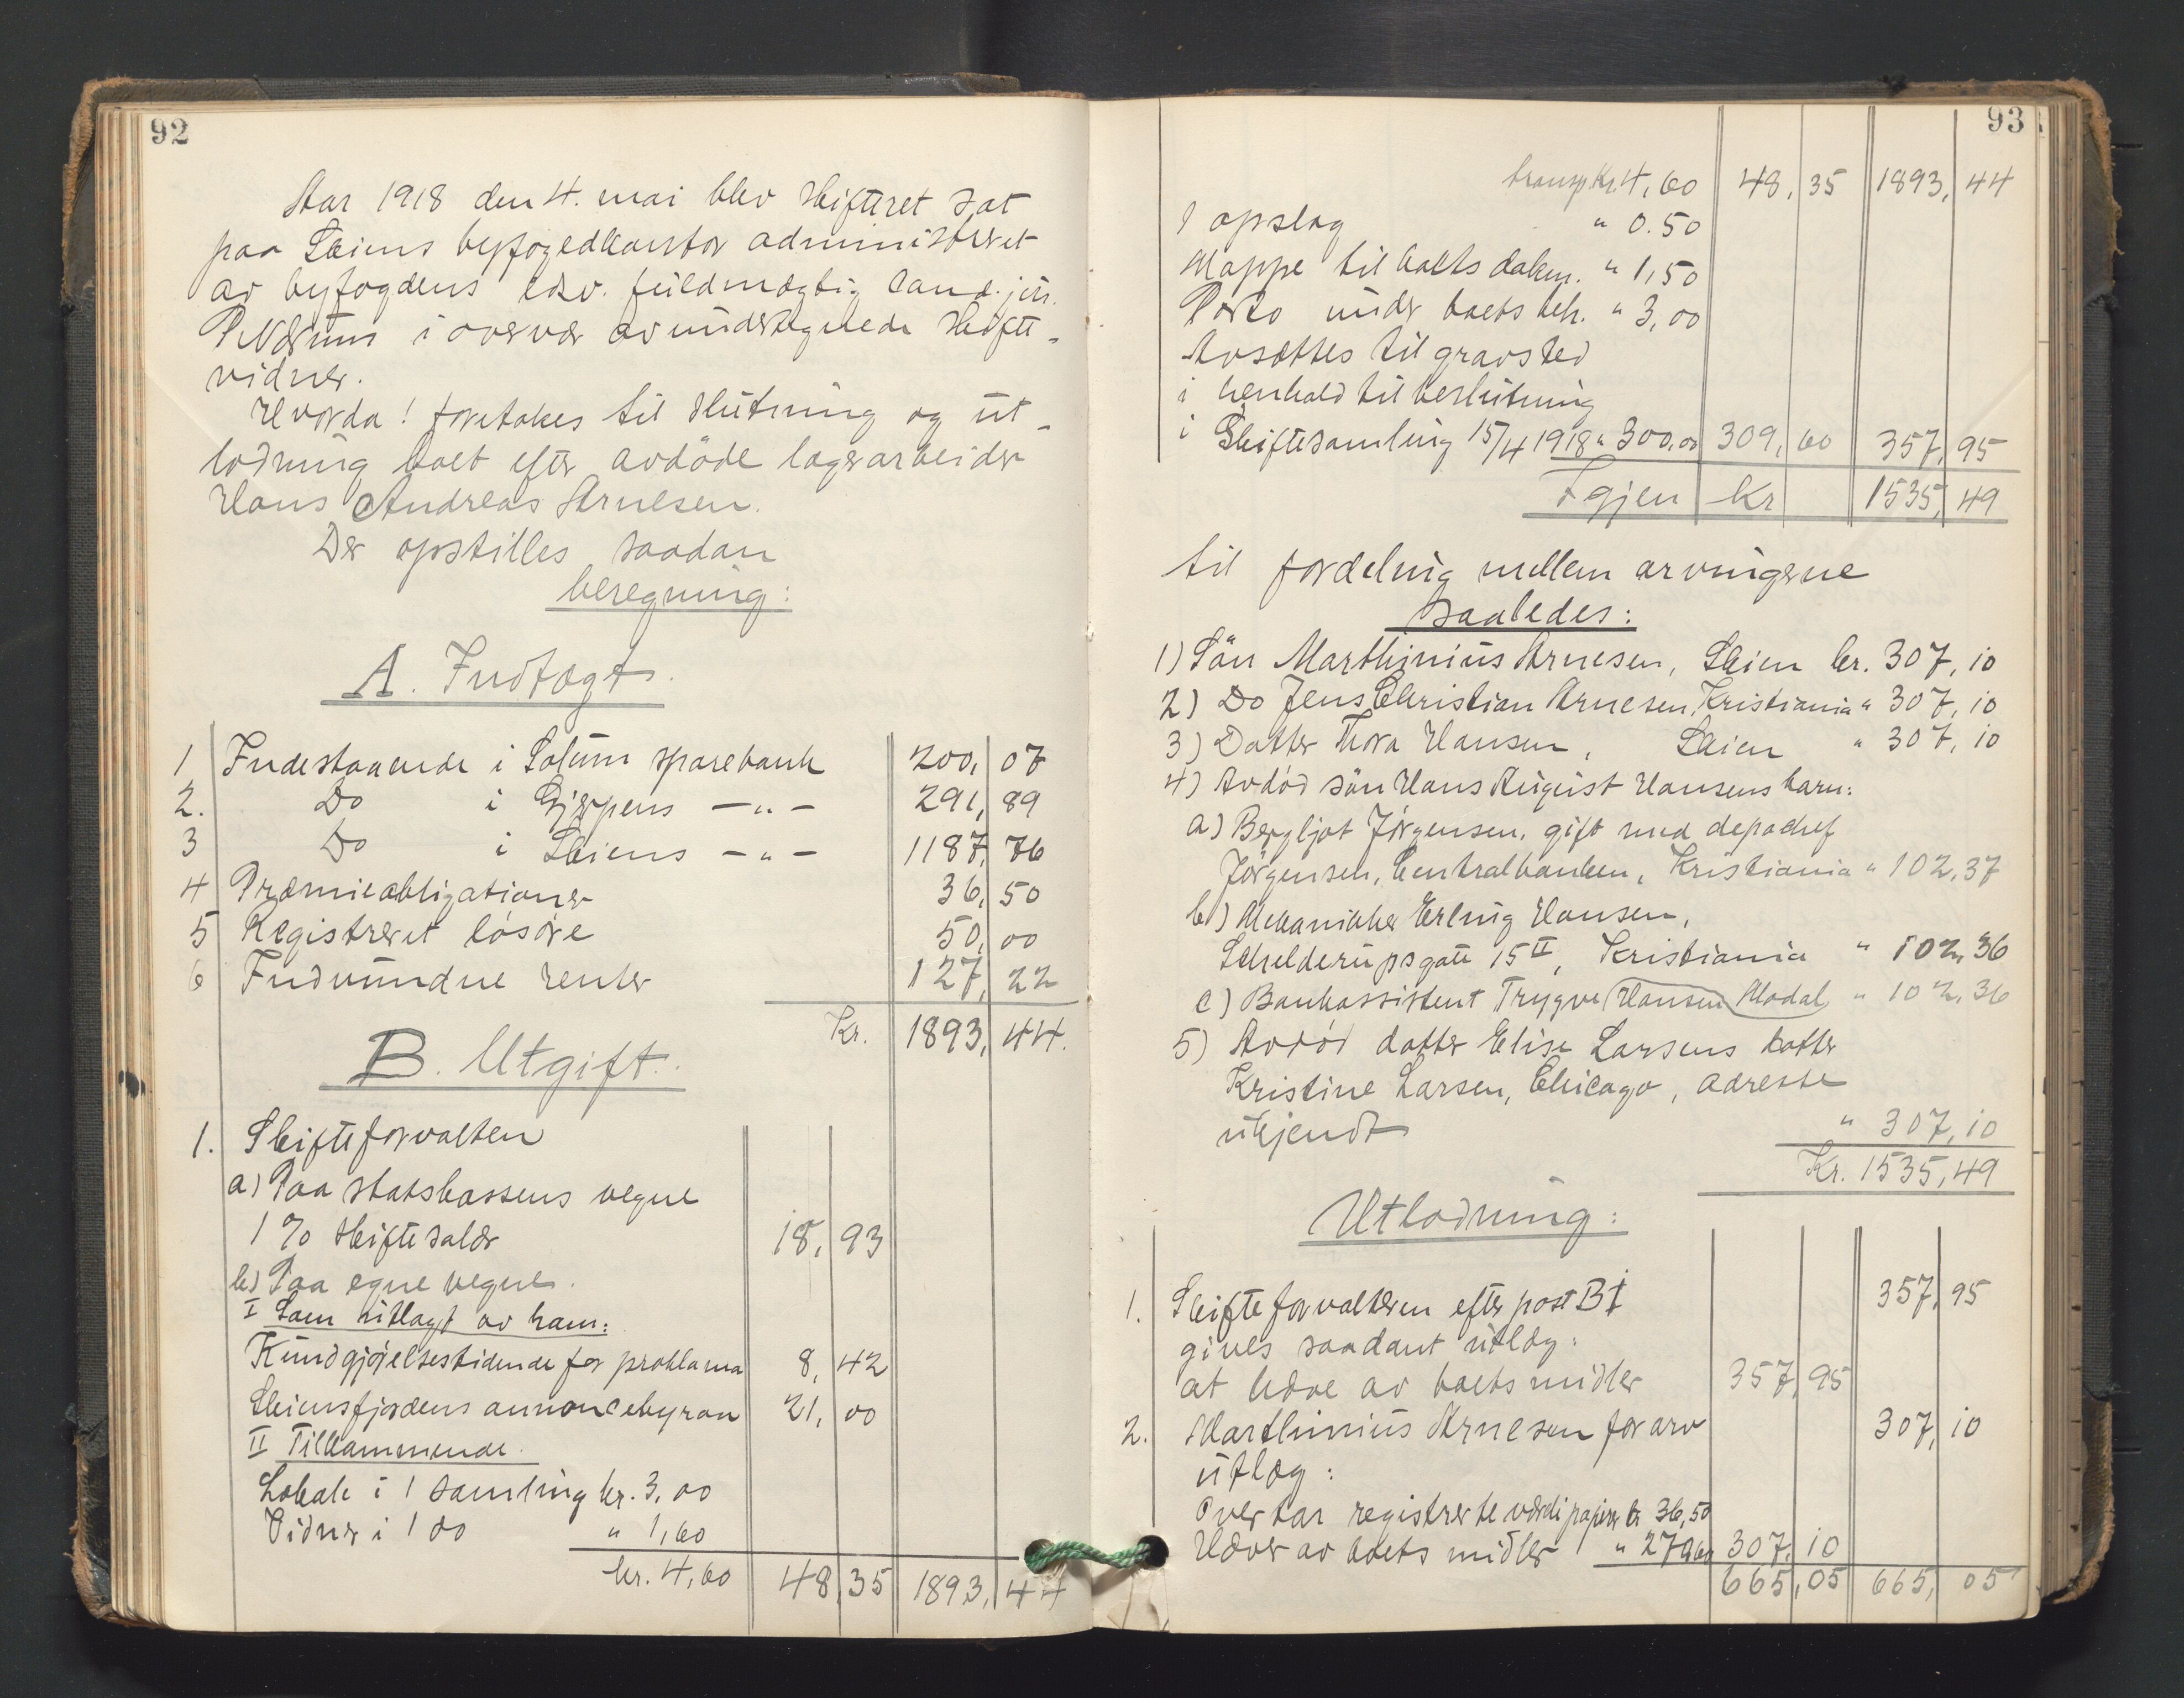 92
Aar 1918 den 4. mai blev skifteret sat
paa Skiens byfogedkontor administreret
av byfogdens edsv. fuldmægtig cand. jur.
i overvær av undertegnede skifte-
vidner.
Hvorda! foretokes til slutning og ut-
lodning boet efter avdöde lagerarbeider
Hans Andreas Arnesen.
Der opstilles saadan
beregning:
A. Indtægt.
1 Indestaaende i Solum sparebank 200,07
2. Do i Gjerpens —„— 291,89
3 Do i Skiens —„— 1187,76
4 Præmieobligationer 36,50
5 Registreret lösöre 50,00
6 Indvundne renter 127,22
Kr. 1893,44.
B. Utgift.
1. Skifteforvalteren
a) Paa statskassens vegne
1 % skiftesalær 18,93
b) Paa egne vegne.
I Som utlagt av ham:
Kundgjörelsestidende for proklama 8,42
Skiensfjordens annoncebyraa 21,00
II Tilkommende.
Lokale i 1 samling kr. 3,00
Vidner i 1 do „ 1,60
kr. 4,60 48,35 1893,44
93
transp. Kr. 4,60 48,35 1893,44
1 opslag „ 0.50
Mappe til boets dokum. „ 1,50
Porto under boets beh. „ 3,00
Avsættes til gravsted
i henhold til beslutning
i Skiftesamling 15/4 1918 „ 300,00 309,60 357,95
Igjen Kr 1535,49
til fordeling mellem arvingerne
saaledes:
1) Sön Marthinius Arnesen, Skien kr. 307,10
2) Do Jens Christian Arnesen, Kristiania „ 307,10
3) Datter Thora Hansen, Skien „ 307,10
4) Avdöd sön Hans August Hansens barn:
a) Bergljot Jörgensen, gift med depochef
Jörgensen, Centralbanken, Kristiania „ 102,37
b) Mekaniker Erling Hansen,
Schelderupsgate 15 II, Kristiania „ 102,36
c) Bankassistent Trygve (Hansen) Modal „ 102,36
5) Avdöd datter Elise Larsens datter
Kristine Larsen, Chicago, adresse
ukjendt „ 307,10
Kr. 1535,49
Utlodning:
1. Skifteforvalteren efter post B 1 357,95
gives saadant utlæg:
at hæve av boets midler 357,95
2. Marthinius Arnesen for arv 307,10
utlæg:
Overtar registrerte værdipapirer kr 36,50
Hæver av boets midler „ 270,60 307,10
665,05 665,05